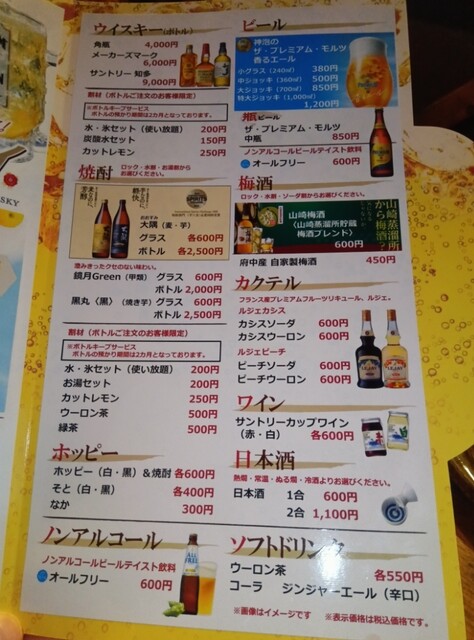 ウイスキー(ボトル)
角瓶 4,000円
メーカーズマーク
6,000円
サントリー 知多
9,000円
割材（ボトルご注文のお客様限定）
※ボトルキープサービス
ボトルの預かり期間は2カ月となっております。
水・氷セット（使い放題） 200円
炭酸水セット 150円
カットレモン 250円
焼酎
ロック・水割・お湯割から
お選びください。
おおすみ
大隅（麦・芋）
グラス 各600円
ボトル 各2,500円
澄みきったクセのない味わい。
鏡月Green（甲類） グラス 600円
ボトル 2,000円
黒丸〈黒〉（焼き芋） グラス 600円
ボトル 2,500円
割材（ボトルご注文のお客様限定）
※ボトルキープサービス
ボトルの預かり期間は2カ月となっております。
水・氷セット（使い放題） 200円
お湯セット 200円
カットレモン 250円
ウーロン茶 500円
緑茶 500円
ホッピー
ホッピー（白・黒）&焼酎 各600円
そと（白・黒） 各400円
なか 300円
ノンアルコール
ノンアルコールビールテイスト飲料
オールフリー
600円
ALL FREE
ビール
神泡の
ザ・プレミアム・モルツ
香るエール
小グラス（240㎖） 380円
中ジョッキ（360㎖） 500円
大ジョッキ（700㎖） 850円
特大ジョッキ（1,000㎖）
1,200円
瓶ビール
ザ・プレミアム・モルツ
中瓶 850円
ノンアルコールビールテイスト飲料
オールフリー 600円
梅酒
ロック・水割・ソーダ割からお選びください。
山崎梅酒
〈山崎蒸溜所貯蔵
梅酒ブレンド〉
600円
山崎蒸溜所
から梅酒?
府中産 自家製梅酒 450円
カクテル
フランス産プレミアムフルーツリキュール、ルジェ。
ルジェカシス
カシスソーダ 600円
カシスウーロン 600円
ルジェピーチ
ピーチソーダ 600円
ピーチウーロン 600円
ワイン
サントリーカップワイン
（赤・白） 各600円
日本酒
熱燗・常温・ぬる燗・冷酒よりお選びください。
日本酒 1合 600円
2合 1,100円
ソフトドリンク
ウーロン茶 各550円
コーラ ジンジャーエール（辛口）
※画像はイメージです ※表示価格は税込価格です。
SKY